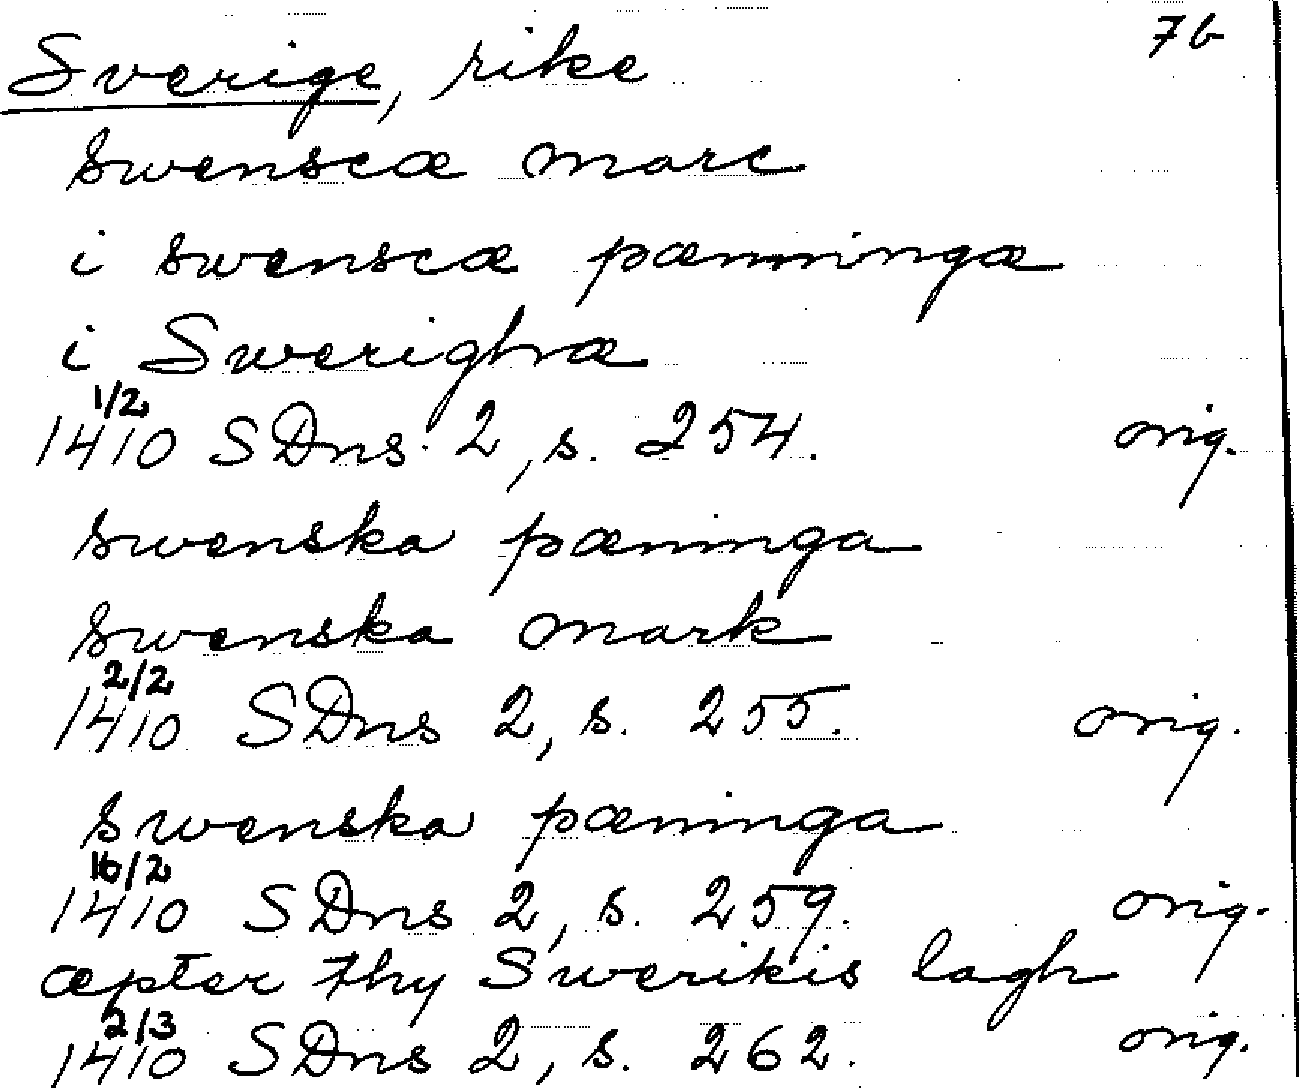 7b
Sverige, rike
swenscæ marc
i swenscæ pænningæ
i Swerighæ
1/2
1410 SDns 2, s. 254. orig.
swenska pæninga
swenska mark
2/2
1410 SDns 2, s. 255. orig.
swenska pæninga
16/2
1410 SDns 2, s. 259. orig.
æpter thy Swerikis lagh
2/3
1410 SDns 2, s. 262. orig.